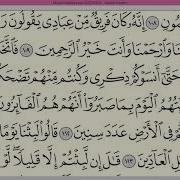 مُونِ ١٠٨ إِنَّهُۥ كَانَ فَرِيقٌ مِّنْ عِبَادِى يَقُولُونَ رَ
وَٱرْحَمْنَا وَأَنتَ خَيْرُ ٱلرَّٰحِمِينَ ١٠٩ فَٱتَّخَ
حَتَّىٰٓ أَنسَوْكُمْ ذِكْرِى وَكُنتُم مِّنْهُمْ تَضْحَكُ
تُهُمُ ٱلْيَوْمَ بِمَا صَبَرُوٓا۟ أَنَّهُمْ هُمُ ٱلْفَآئِزُونَ
فِى ٱلْأَرْضِ عَدَدَ سِنِينَ ١١٢ قَالُوا۟ لَبِثْنَا يَوْمًا
لِ ٱلْعَآدِّينَ ١١٣ قَٰلَ إِن لَّبِثْتُمْ إِلَّا قَلِيلًا لَّوْ